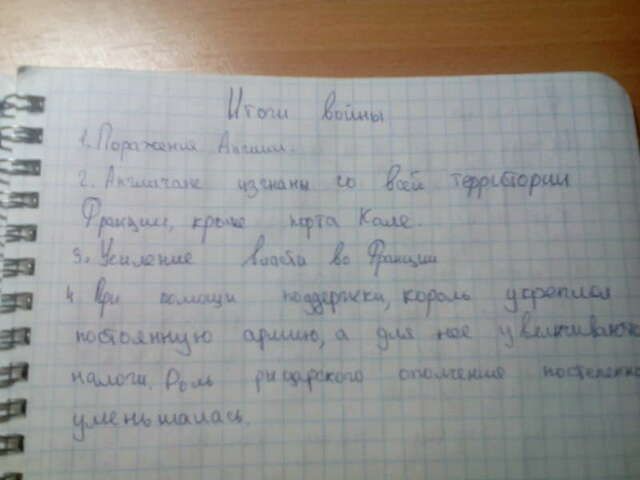 Итоги войны
1. Поражения Англии.
2. Англичане изгнаны со всей территории
Франции, кроме порта Кале.
3. Усиление власти во Франции
4 При помощи поддержки, король укреплял
постоянную армию, а для нее увеличиваютс
налоги. Роль рыцарского ополчение постепенно
уменьшалась.